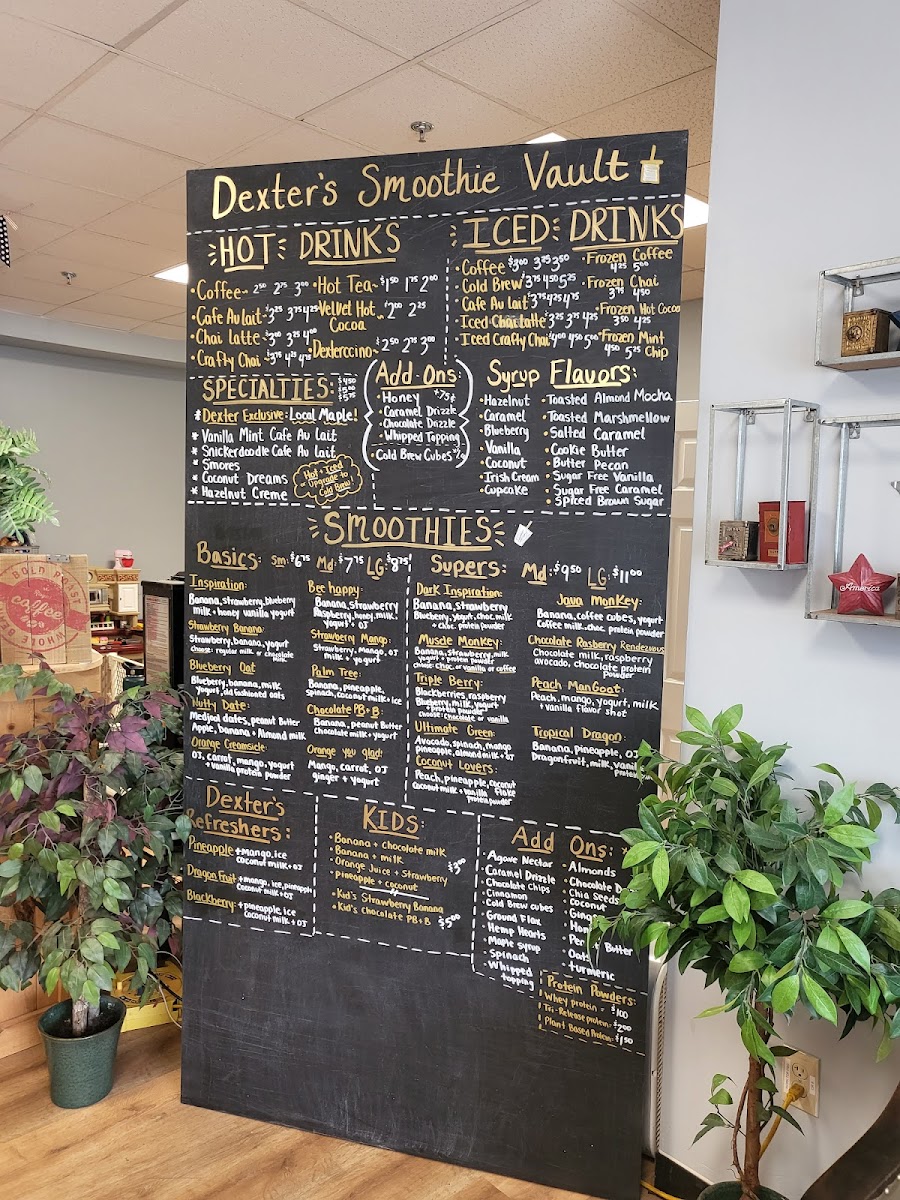 Dexter's Smoothie Vault
HOT DRINKS
• Coffee~ 2⁵⁰ 2⁷⁵ 3⁰⁰
• Cafe Au lait~ 3²⁵ 3⁷⁵ 4²⁵
• Chai Latte~ 3⁰⁰ 3²⁵ 4⁰⁰
• Crafty Chai~ 3⁷⁵ 4²⁵
• Hot Tea~ $1⁵⁰ 1⁷⁵ 2⁰⁰
• Velvet Hot Cocoa~ $2⁰⁰ 2²⁵
• Dexterccino~ $2⁵⁰ 2⁷⁵ 3⁰⁰
ICED DRINKS
• Coffee $3⁰⁰ 3²⁵ 3⁵⁰
• Cold Brew $3⁷⁵ 4⁵⁰ 5²⁵
• Cafe Au lait $3⁷⁵ 4²⁵ 4⁷⁵
• Iced Chai Latte $3²⁵ 3⁷⁵ 4²⁵
• Iced Crafty Chai 4⁰⁰ 4⁵⁰ 5⁰⁰
• Frozen Coffee
4²⁵ 5⁰⁰
• Frozen Chai
3⁷⁵ 4⁵⁰
• Frozen Hot Cocoa
3⁵⁰ 4²⁵
• Frozen Mint
4⁵⁰ 5²⁵ Chip
SPECIALTIES: $4⁵⁰
$5⁰⁰
$5⁷⁵
* Dexter Exclusive: Local Maple!
* Vanilla Mint Cafe Au Lait
* Snickerdoodle Cafe Au Lait
* Smores
* Coconut Dreams
* Hazelnut Creme
Hot + Iced
Upgrade to
Cold Brew!
Add Ons:
• Honey +75¢
• Caramel Drizzle
• Chocolate Drizzle
• Whipped Topping
• Cold Brew Cubes
Syrup Flavors:
• Hazelnut
• Caramel
• Blueberry
• Vanilla
• Coconut
• Irish Cream
• Cupcake
• Toasted Almond Mocha
• Toasted Marshmellow
• Salted Caramel
• Cookie Butter
• Butter Pecan
• Sugar Free Vanilla
• Sugar Free Caramel
• Spiced Brown Sugar
SMOOTHIES
Basics: Sm: $6⁷⁵ Md: $7⁷⁵ LG: $8⁷⁵
Inspiration:
Banana, strawberry, blueberry
milk + honey vanilla yogurt
Strawberry Banana:
Strawberry, banana, yogurt
choose: regular milk or chocolate
milk
Blueberry Oat
Blueberry, banana, milk
yogurt, old fashioned oats
Nutty Date:
Medjool dates, peanut butter
Apple, banana + Almond milk
Orange Creamsicle:
OJ, carrot, mango, yogurt
+ vanilla protein powder
Bee happy:
Banana, strawberry
Raspberry, honey, milk,
yogurt + OJ
Strawberry Mango:
Strawberry, Mango, OJ
milk + yogurt
Palm Tree:
Banana, pineapple,
spinach, coconut milk + ice
Chocolate PB+B:
Banana, peanut Butter
Chocolate milk + yogurt
Orange you glad:
Mango, carrot, OJ
ginger + yogurt
Supers: Md: $9⁵⁰ LG: $11⁰⁰
Dark Inspiration:
Banana, strawberry,
Blueberry, yogurt, choc. milk
+ choc. protein powder
Muscle Monkey:
Banana, strawberry, milk
yogurt + protein powder
choose: choc. or vanilla or coffee
Triple Berry:
Blackberries, raspberry
Blueberry, milk, yogurt
+ protein powder
choose: chocolate or vanilla
Ultimate Green:
Avocado, spinach, mango
pineapple, almond milk + OJ
Coconut Lovers:
Peach, pineapple, coconut
coconut milk + vanilla flake
protein powder
Java Monkey:
Banana, coffee cubes, yogurt
Coffee milk, choc. protein powder
Chocolate Rasberry Rendezvous
Chocolate milk, raspberry
avocado, chocolate protein
powder
Peach ManGoat:
Peach, mango, yogurt, milk
+ vanilla flavor shot
Tropical Dragon:
Banana, pineapple, OJ
Dragonfruit, milk, vanil
protein
Dexter's
Refreshers:
Pineapple + mango, ice
coconut milk + OJ
Dragon Fruit + mango, ice, pineapple
coconut milk + OJ
Blackberry: + pineapple, ice
Coconut milk + OJ
KIDS
• Banana + chocolate milk
• Banana + milk
• Orange Juice + Strawberry
• Pineapple + coconut
$3⁰⁰
• Kid's Strawberry Banana
• Kid's chocolate PB+B
$5⁰⁰
Add Ons:
• Agave Nectar
• Caramel Drizzle
• Chocolate Chips
• Cinnamon
• Cold Brew cubes
• Ground Flax
• Hemp Hearts
• Maple syrup
• Spinach
• Whipped
topping
• Almonds
• Chocolate D
• Chia Seeds
• Coconut
• Ginge
• Hon
• Pe Butter
• Oats
• turmeric
Protein Powders:
Whey protein = $1.00
Tri-Release protein = $2⁰⁰
Plant Based Protein: $1⁵⁰
BOLD ROAST
coffee
WHOLE BEAN
America